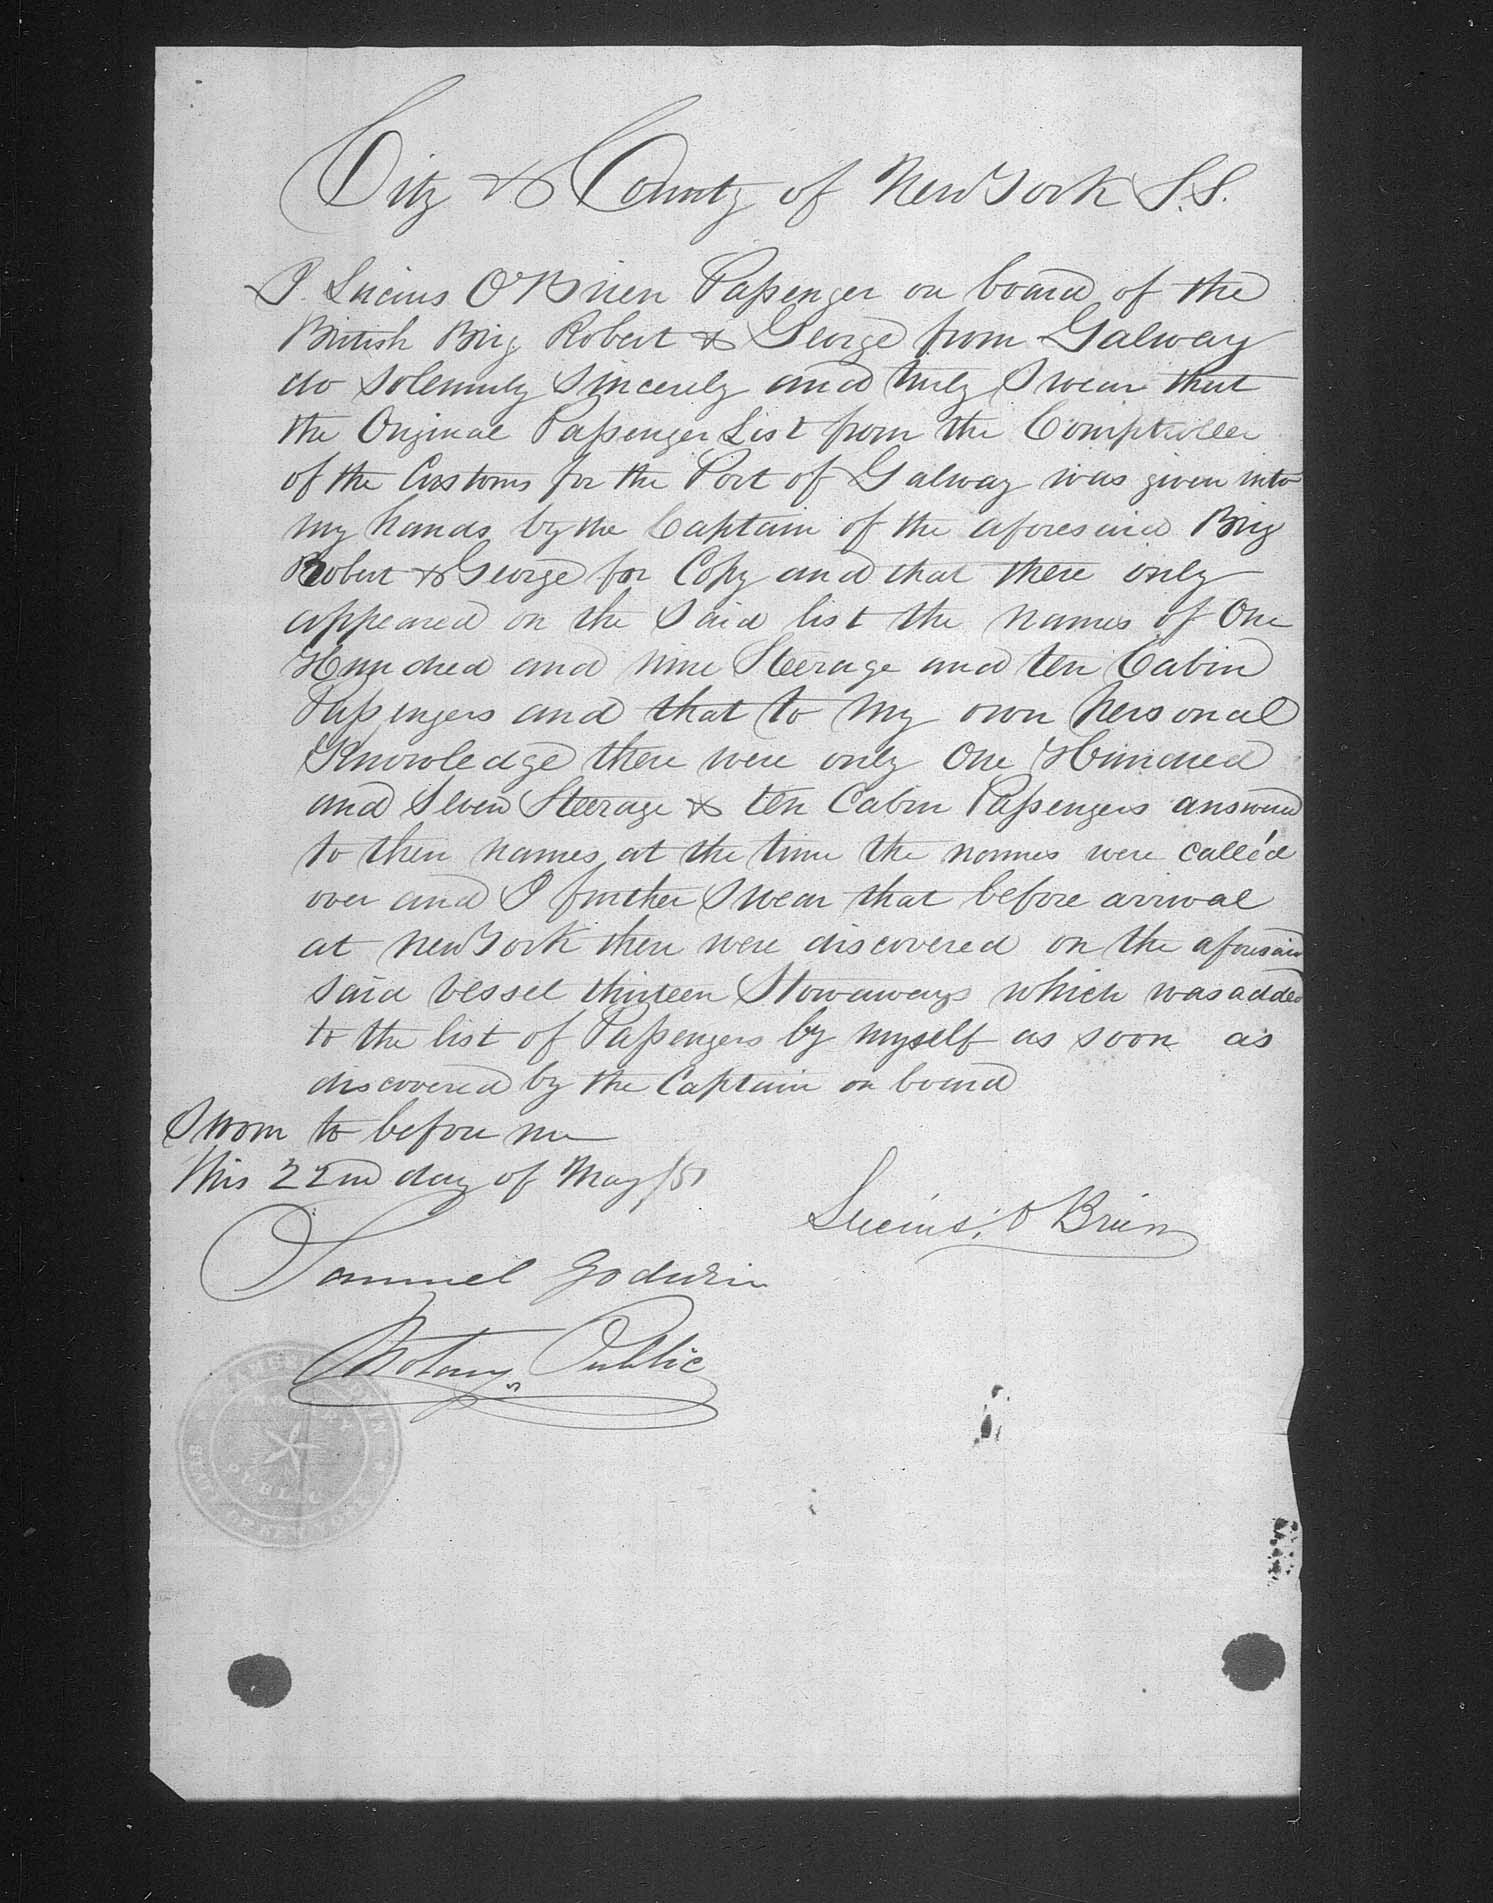 City & County of New York S.S.
I Lucius O'Brien Passenger on board of the
British Brig Robert & George from Galway
do solemnly sincerely and truly Swear that
the Original Passenger List from the Comptroller
of the Customs for the Port of Galway was given into
my hands by the Captain of the aforesaid Brig
Robert & George for Copy and that there only
appeared on the Said list the names of One
Hundred and nine Steerage and ten Cabin
Passengers and that to my own Personal
Knowledge there were only One Hundred
and Seven Steerage & ten Cabin Passengers answered
to their names at the time the names were calle'd
over and I further Swear that before arrival
at New York there were discovered on the aforesaid
Said vessel thirteen Stowaways which was added
to the list of Passengers by myself as soon as
discovered by the Captain on board
Sworn to before me
this 22nd day of May /51
Lucius O'Brien
Samuel Godwin
Notary Public
NOTARY
PUBLIC
STATE OF NEW YORK